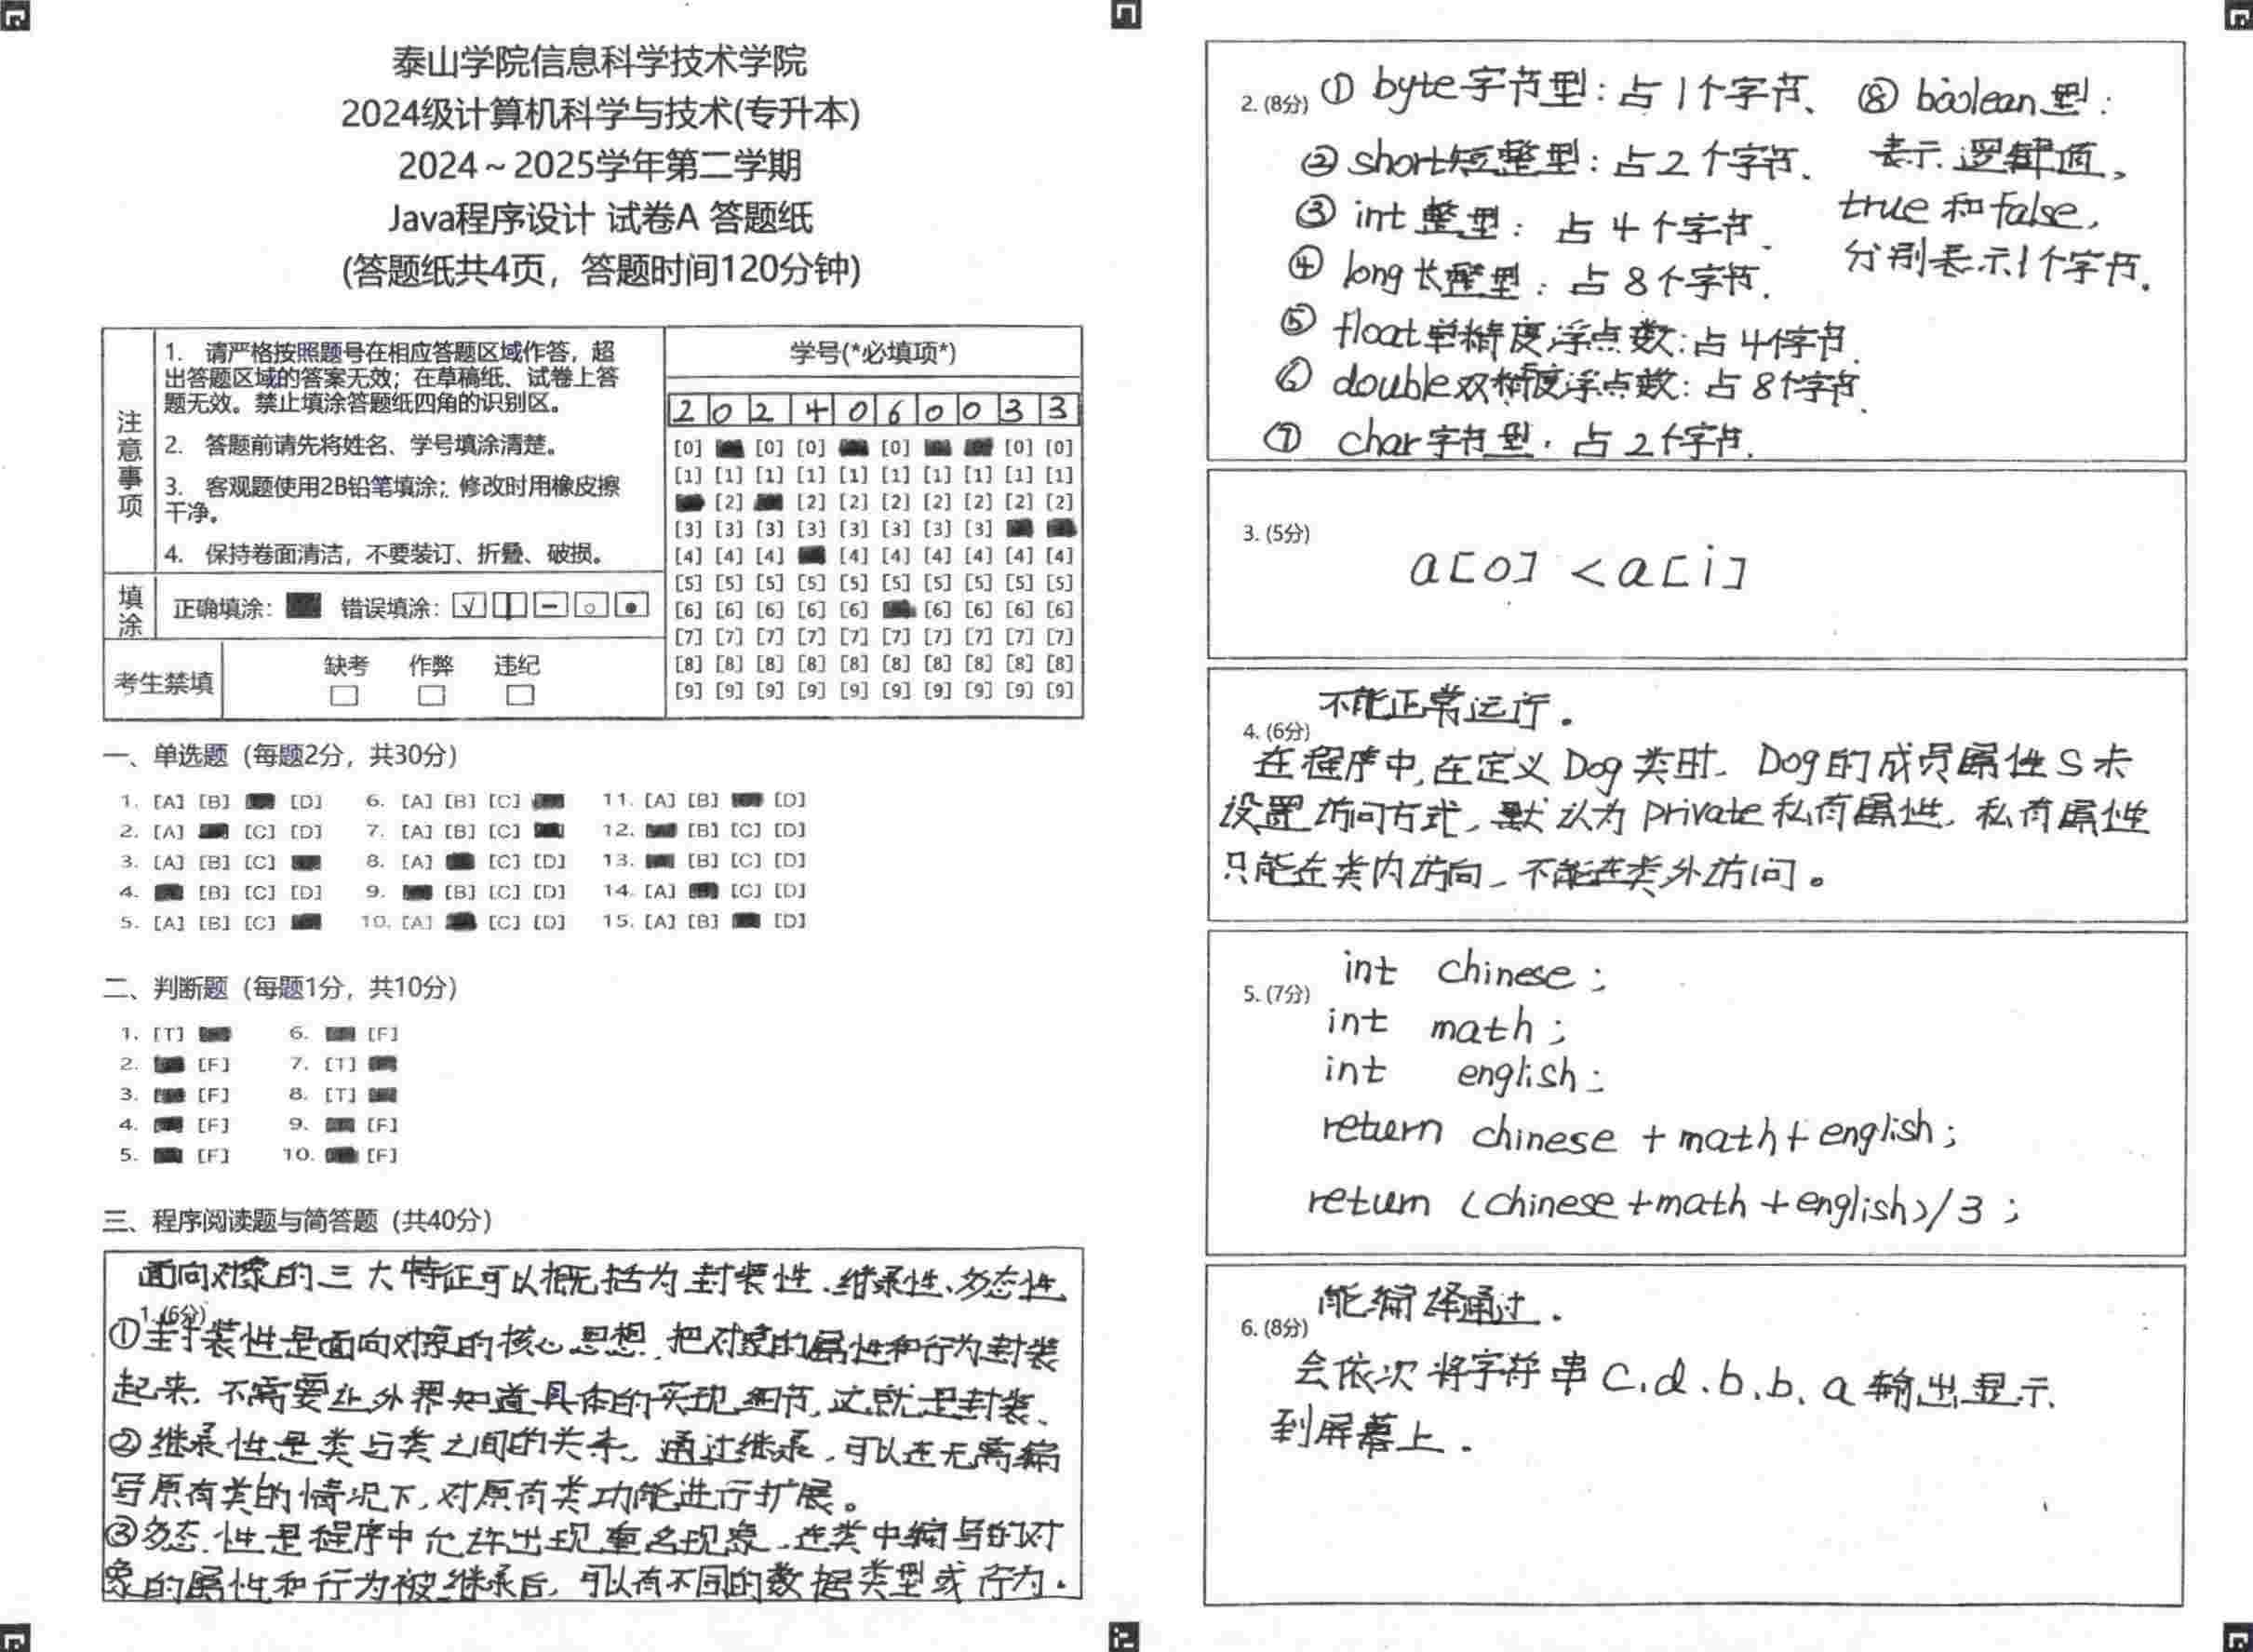 泰山学院信息科学技术学院
2024级计算机科学与技术(专升本)
2024～2025学年第二学期
Java程序设计 试卷A 答题纸
(答题纸共4页，答题时间120分钟)
注意事项
1. 请严格按照题号在相应答题区域作答，超
出答题区域的答案无效；在草稿纸、试卷上答
题无效。禁止填涂答题纸四角的识别区。
2. 答题前请先将姓名、学号填涂清楚。
3. 客观题使用2B铅笔填涂；修改时用橡皮擦
干净。
4. 保持卷面清洁，不要装订、折叠、破损。
填涂
正确填涂： 错误填涂：
考生禁填
缺考 作弊 违纪
学号(*必填项*)
2 0 2 4 0 6 0 0 3 3
[0] [0] [0] [0] [0] [0]
[1] [1] [1] [1] [1] [1] [1] [1] [1] [1]
[2] [2] [2] [2] [2] [2] [2] [2]
[3] [3] [3] [3] [3] [3] [3] [3]
[4] [4] [4] [4] [4] [4] [4] [4] [4]
[5] [5] [5] [5] [5] [5] [5] [5] [5] [5]
[6] [6] [6] [6] [6] [6] [6] [6] [6]
[7] [7] [7] [7] [7] [7] [7] [7] [7] [7]
[8] [8] [8] [8] [8] [8] [8] [8] [8] [8]
[9] [9] [9] [9] [9] [9] [9] [9] [9] [9]
一、单选题（每题2分，共30分）
1. [A] [B] [D] 6. [A] [B] [C] 11. [A] [B] [D]
2. [A] [C] [D] 7. [A] [B] [C] 12. [B] [C] [D]
3. [A] [B] [C] 8. [A] [C] [D] 13. [B] [C] [D]
4. [B] [C] [D] 9. [B] [C] [D] 14. [A] [C] [D]
5. [A] [B] [C] 10. [A] [C] [D] 15. [A] [B] [D]
二、判断题（每题1分，共10分）
1. [T] 6. [F]
2. [F] 7. [T]
3. [F] 8. [T]
4. [F] 9. [F]
5. [F] 10. [F]
三、程序阅读题与简答题（共40分）
面向对象的三大特征可以概括为封装性、继承性、多态性
1. (6分)
①封装性是面向对象的核心思想，把对象的属性和行为封装
起来，不需要让外界知道具体的实现细节，这就是封装、
②继承性是类与类之间的关系，通过继承，可以在无需编
写原有类的情况下，对原有类功能进行扩展。
③多态性是程序中允许出现重名现象，在类中编写的对
象的属性和行为被继承后，可以有不同的数据类型或行为.
2. (8分) ①byte字节型：占1个字节、 ⑧boolean型：
②short短整型：占2个字节. 表示逻辑值，
③int整型：占4个字节. true和false,
④long长整型：占8个字节. 分别表示1个字节.
⑤float单精度浮点数：占4个字节.
⑥double双精度浮点数：占8个字节.
⑦char字节型，占2个字节.
3. (5分)
a[0] <a[i]
不能正常运行.
4. (6分)
在程序中,在定义Dog类时，Dog的成员属性S未
设置访问方式，默认为private私有属性，私有属性
只能在类内访问，不能在类外访问。
int chinese;
5. (7分)
int math;
int english;
return chinese +math+english;
return (chinese+math+english)/3;
能编译通过.
6. (8分)
会依次将字符串c、d、b、b、a输出显示
到屏幕上.